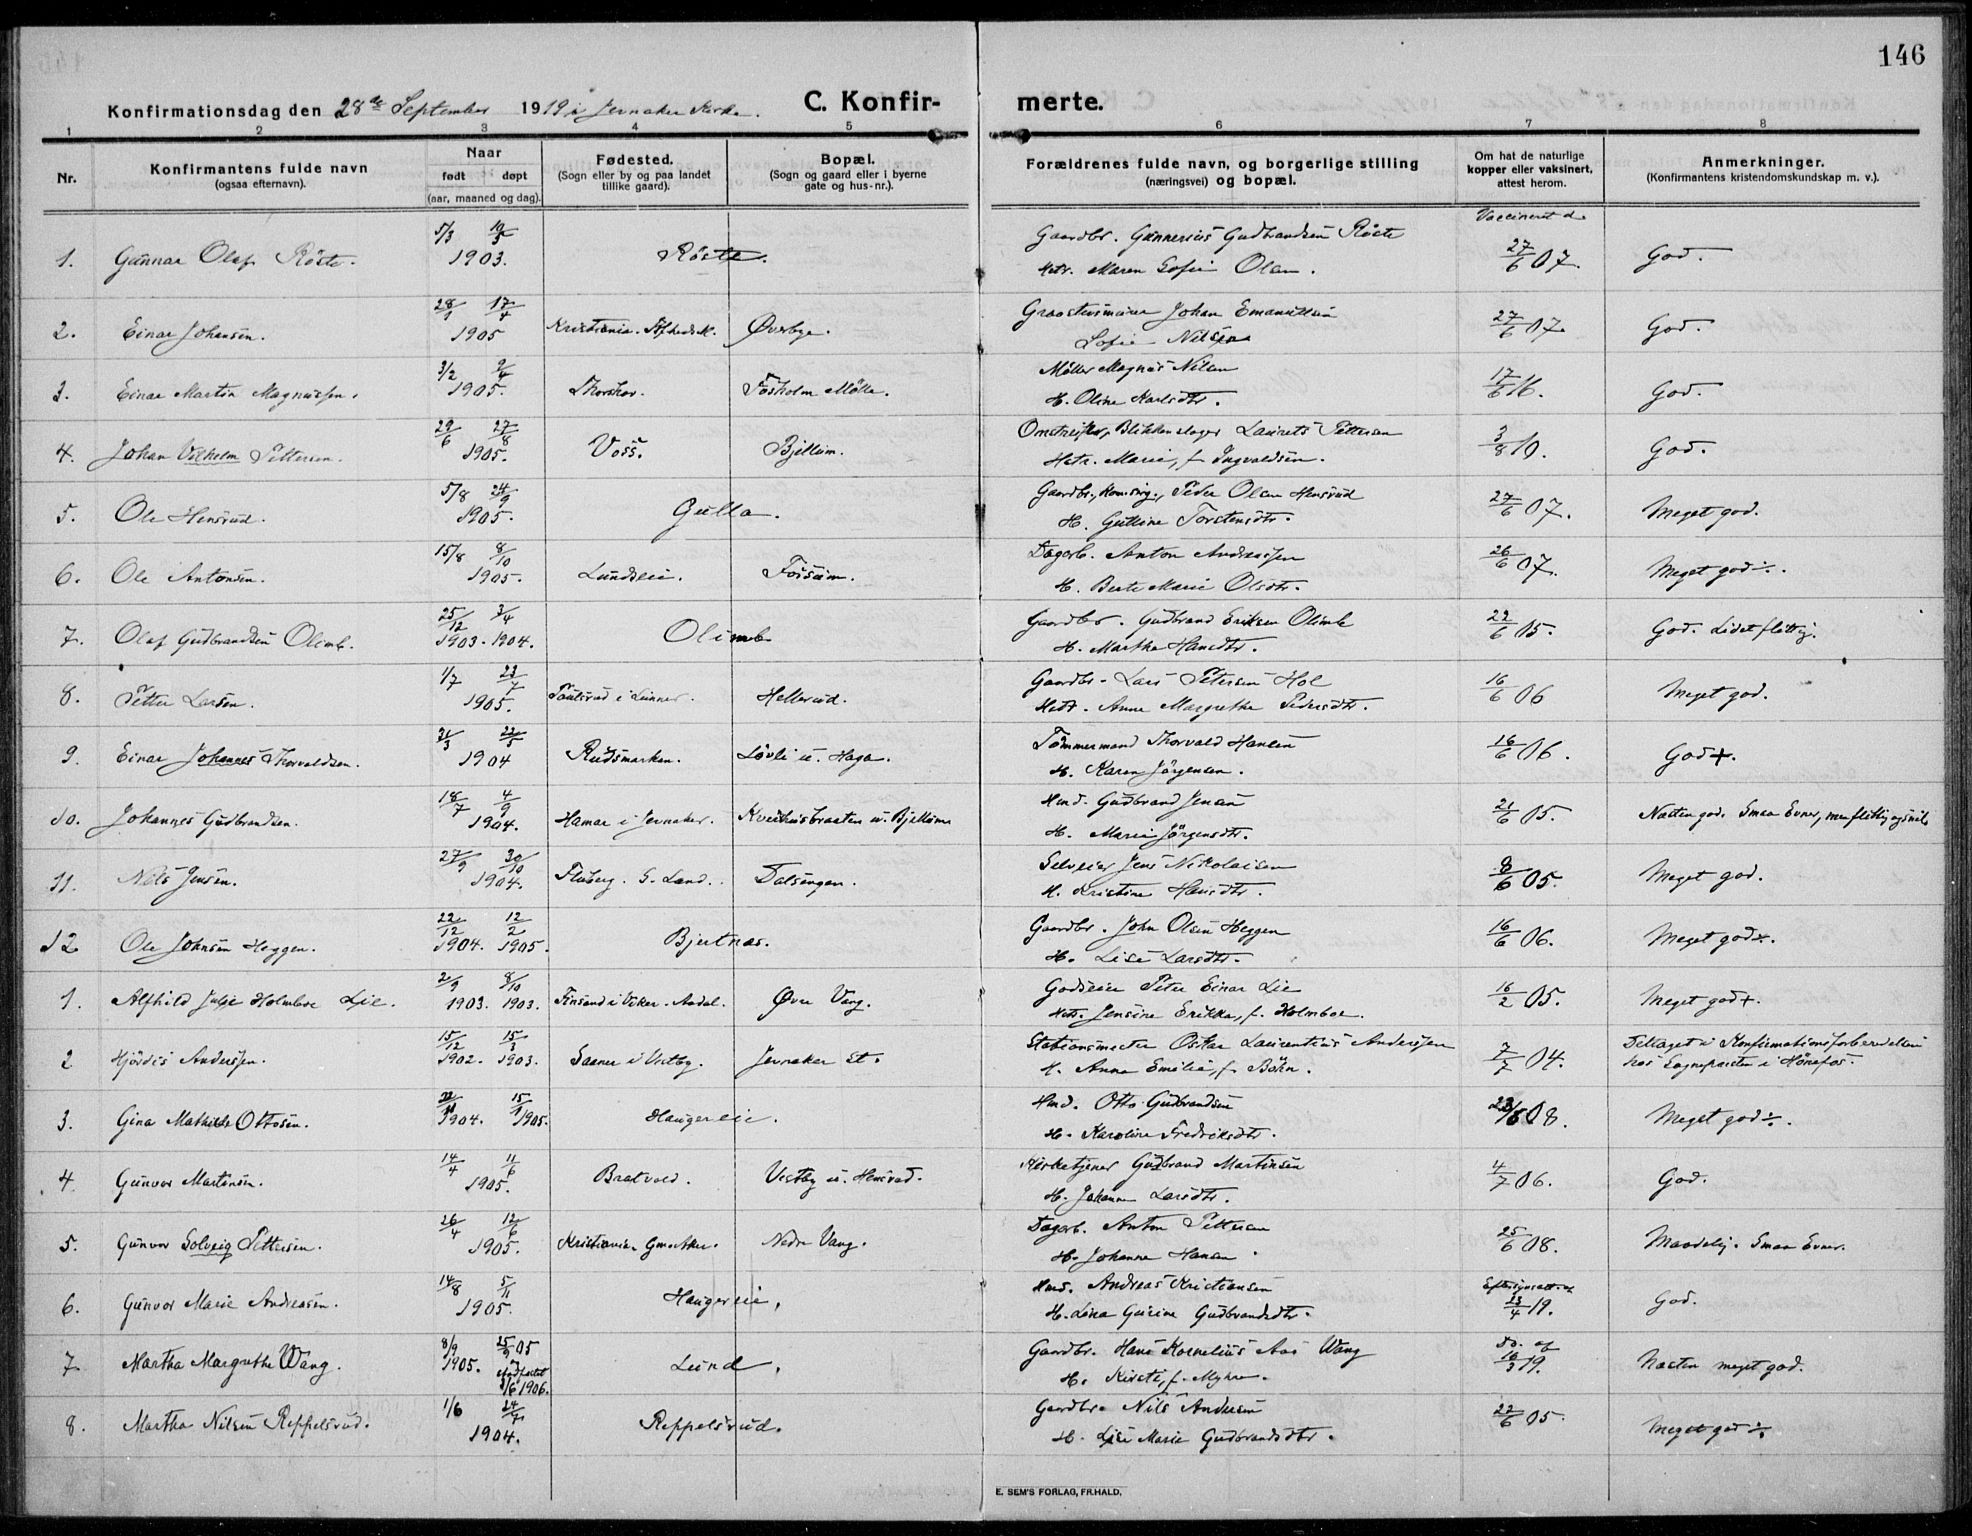 146
Konfirmationsdag den 28de September 1919 i Jevnaker Kirke. C. Konfirmerte.
1 2 3 4 5 6 7 8
Nr. Konfirmantens fulde navn (ogsaa efternavn). Naar født døpt (aar, maaned og dag). Fødested. (Sogn eller by og paa landet tillike gaard). Bopæl. (Sogn og gaard eller i byerne gate og hus-nr.). Forældrenes fulde navn, og borgerlige stilling (næringsvei) og bopæl. Om hat de naturlige kopper eller vaksinert, attest herom. Anmerkninger. (Konfirmantens kristendomskundskap m. v.).
1. Gunnar Olaf Röste. 5/3 10/5 1903. Röste. Gaardbr. Gunnerius Gudbrandsen Röste Vaccineret d. 27/6 07. God.
Hstr. Maren Sofie Olsen.
2. Einar Johansen. 28/1 17/4 1905 Kristiania. Øverbye. Johan Emanuelsen 27/6 07. God.
Sofie Nilsen
3. Einar Martin Magnussen. 3/2 9/4 1905. Thorshov. Fosholm Mölle. Möller Magnus Nilsen 17/6 16. God.
H. Oline Karlsdtr.
4. Johan Vilhelm Pettersen. 29/6 27/8 1905. Voss. Bjellum. Omstreifer, Blikkenslager Laurets Pettersen 3/8 10. God.
Hstr. Marie, f. Ingvaldsen.
5. Ole Hensrud. 5/8 24/9 1905. Gulla. Gaardbr., Peder Olsen Hensrud 27/6 07. Meget god.
H. Gulline Torstensdtr.
6. Ole Antonsen. 15/8 8/10 1905. Lundseie. Fossum. Dagarb. Anton Andreassen 26/6 07. Meget god ÷.
H. Berte Marie Olsdtr.
7. Olaf Gudbrandsen Olimb. 25/12 3/4 1903. 1904. Olimb Gaardbr. Gudbrand Eriksen Olimb 22/6 05. God. Lidet flittig.
H. Marthe Hansdtr.
8. Petter Larsen. 1/7 23/7 1905. Paulsrud i Lunner. Hellerud. Gaardbr. Lars Petersen Hol 16/6 06 Meget god.
Hstr. Anne Margrethe Pedersdtr.
9. Einar Johannes Thorvaldsen. 21/3 22/5 1904 Rudsmarken. Lövli u. Haga. Tömmermand Thorvald Hansen 16/6 06. God +.
H. Karen Jörgensen.
10. Johannes Gudbrandsen. 18/7 4/9 1904. Hamar i Jevnaker. Kveihusbraaten u. Bjellum Hmd. Gudbrand Jensen 21/6 05. Næsten god. Smaa Evner, men flittig og snil.
H. Marie Jörgensdtr.
11. Nils Jensen. 27/9 30/10 1904. Fluberg. S. Land. Dalsengen. Selveier Jens Nikolaisen 8/6 05. Meget god.
H. Kristine Hansdtr.
12 Ole Johnsen Heggen. 22/12 12/2 1904. 1905. Bjertnæs. Gaardbr. John Olsen Heggen 16/6 06. Meget god +.
H. Lise Larsdtr.
1. Alfhild Julie Holmboe Lie. 2/9 8/10 1903. 1903. Finsand i Viker. Aadal. Øvre Vang. Godseier Peter Einar Lie 16/2 05. Meget god +.
Hstr. Jensine Erikka, f. Holmboe.
2 Hjördis Anderssen. 15/12 15/3 1902. 1903. Saaner i Vestby. Jevnaker St. Stationsmester Oskar Laurentius Anderssen 7/7 04. Deltaget i Konfirmationsforberedelsen
H. Anna Emilie, f. Böhn. hos Sognepresten i Hönefos.
3. Gina Mathilde Ottosen. 22/11 15/1 1904. 1905. Haugereie. Hmd. Otto Gudbrandsen 23/6 08. Meget god ÷.
H. Karoline Fredriksdtr.
4 Gunvor Martinsen. 14/4 11/6 1905. Bratvold. Vestby u. Hensrud. Kirketjener Gudbrand Martinsen 4/7 06. God.
H. Johanne Larsdtr.
5. Gunvor Solveig Pettersen. 26/4 12/6 1905. Kristiania. Gml. Aker. Nedre Vang. Dagarb. Anton Pettersen 25/6 08. Maadelig. Smaa Evner.
H. Johanne Hansen.
6. Gunvor Marie Andreasen. 14/8 5/11 1905. Haugereie. Hmd. Andreas Kristiansen Eftersynsatt. af 23/4 19. God.
H. Lina Gurine Gudbrandsdtr.
7 Martha Margrethe Wang. 8/9 1905. 25/9 05 stadfæstet 3/6 1906. Lund. Gaardbr. Hans Kornelius Aas Wang Do. af 16/3 19. Næsten meget god.
H. Kirsti, f. Myhre.
8. Martha Nilsen Reppelsrud. 1/6 24/7 1904. Reppelsrud. Gaardbr. Nils Andersen 22/6 05. Meget god ÷.
H. Lise Marie Gudbrandsdtr.
E. SEM'S FORLAG, FR.HALD.